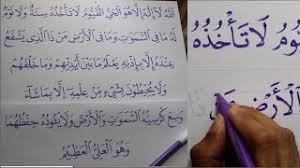 اللَّهُ لَا إِلَهَ إِلَّا هُوَ الْحَيُّ الْقَيُّومُ لَا تَأْخُذُهُ سِنَةٌ وَلَا نَوْمٌ
لَهُ مَا فِي السَّمَوَاتِ وَمَا فِي الْأَرْضِ مَنْ ذَا الَّذِي يَشْفَعُ
عِنْدَهُ إِلَّا بِإِذْنِهِ يَعْلَمُ مَا بَيْنَ أَيْدِيهِمْ وَمَا خَلْفَهُمْ
وَلَا يُحِيطُونَ بِشَيْءٍ مِنْ عِلْمِهِ إِلَّا بِمَا شَاءَ
وَسِعَ كُرْسِيُّهُ السَّمَوَاتِ وَالْأَرْضَ وَلَا يَئُودُهُ حِفْظُهُمَا
وَهُوَ الْعَلِيُّ الْعَظِيمُ
يُّومُ لَا تَأْخُذُهُ
الْأَرْضِ مَن